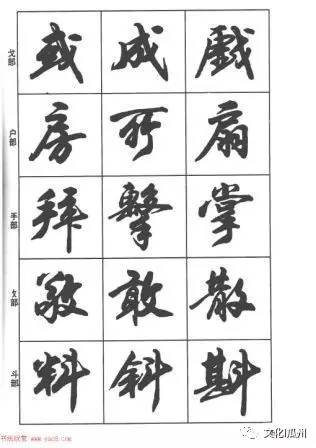 戈部 或 成 戲
户部 房 所 扇
手部 拜 擊 掌
攵部 敬 敢 散
斗部 料 斜 斟
书法欣赏 www.yac8.com
文化瓜州